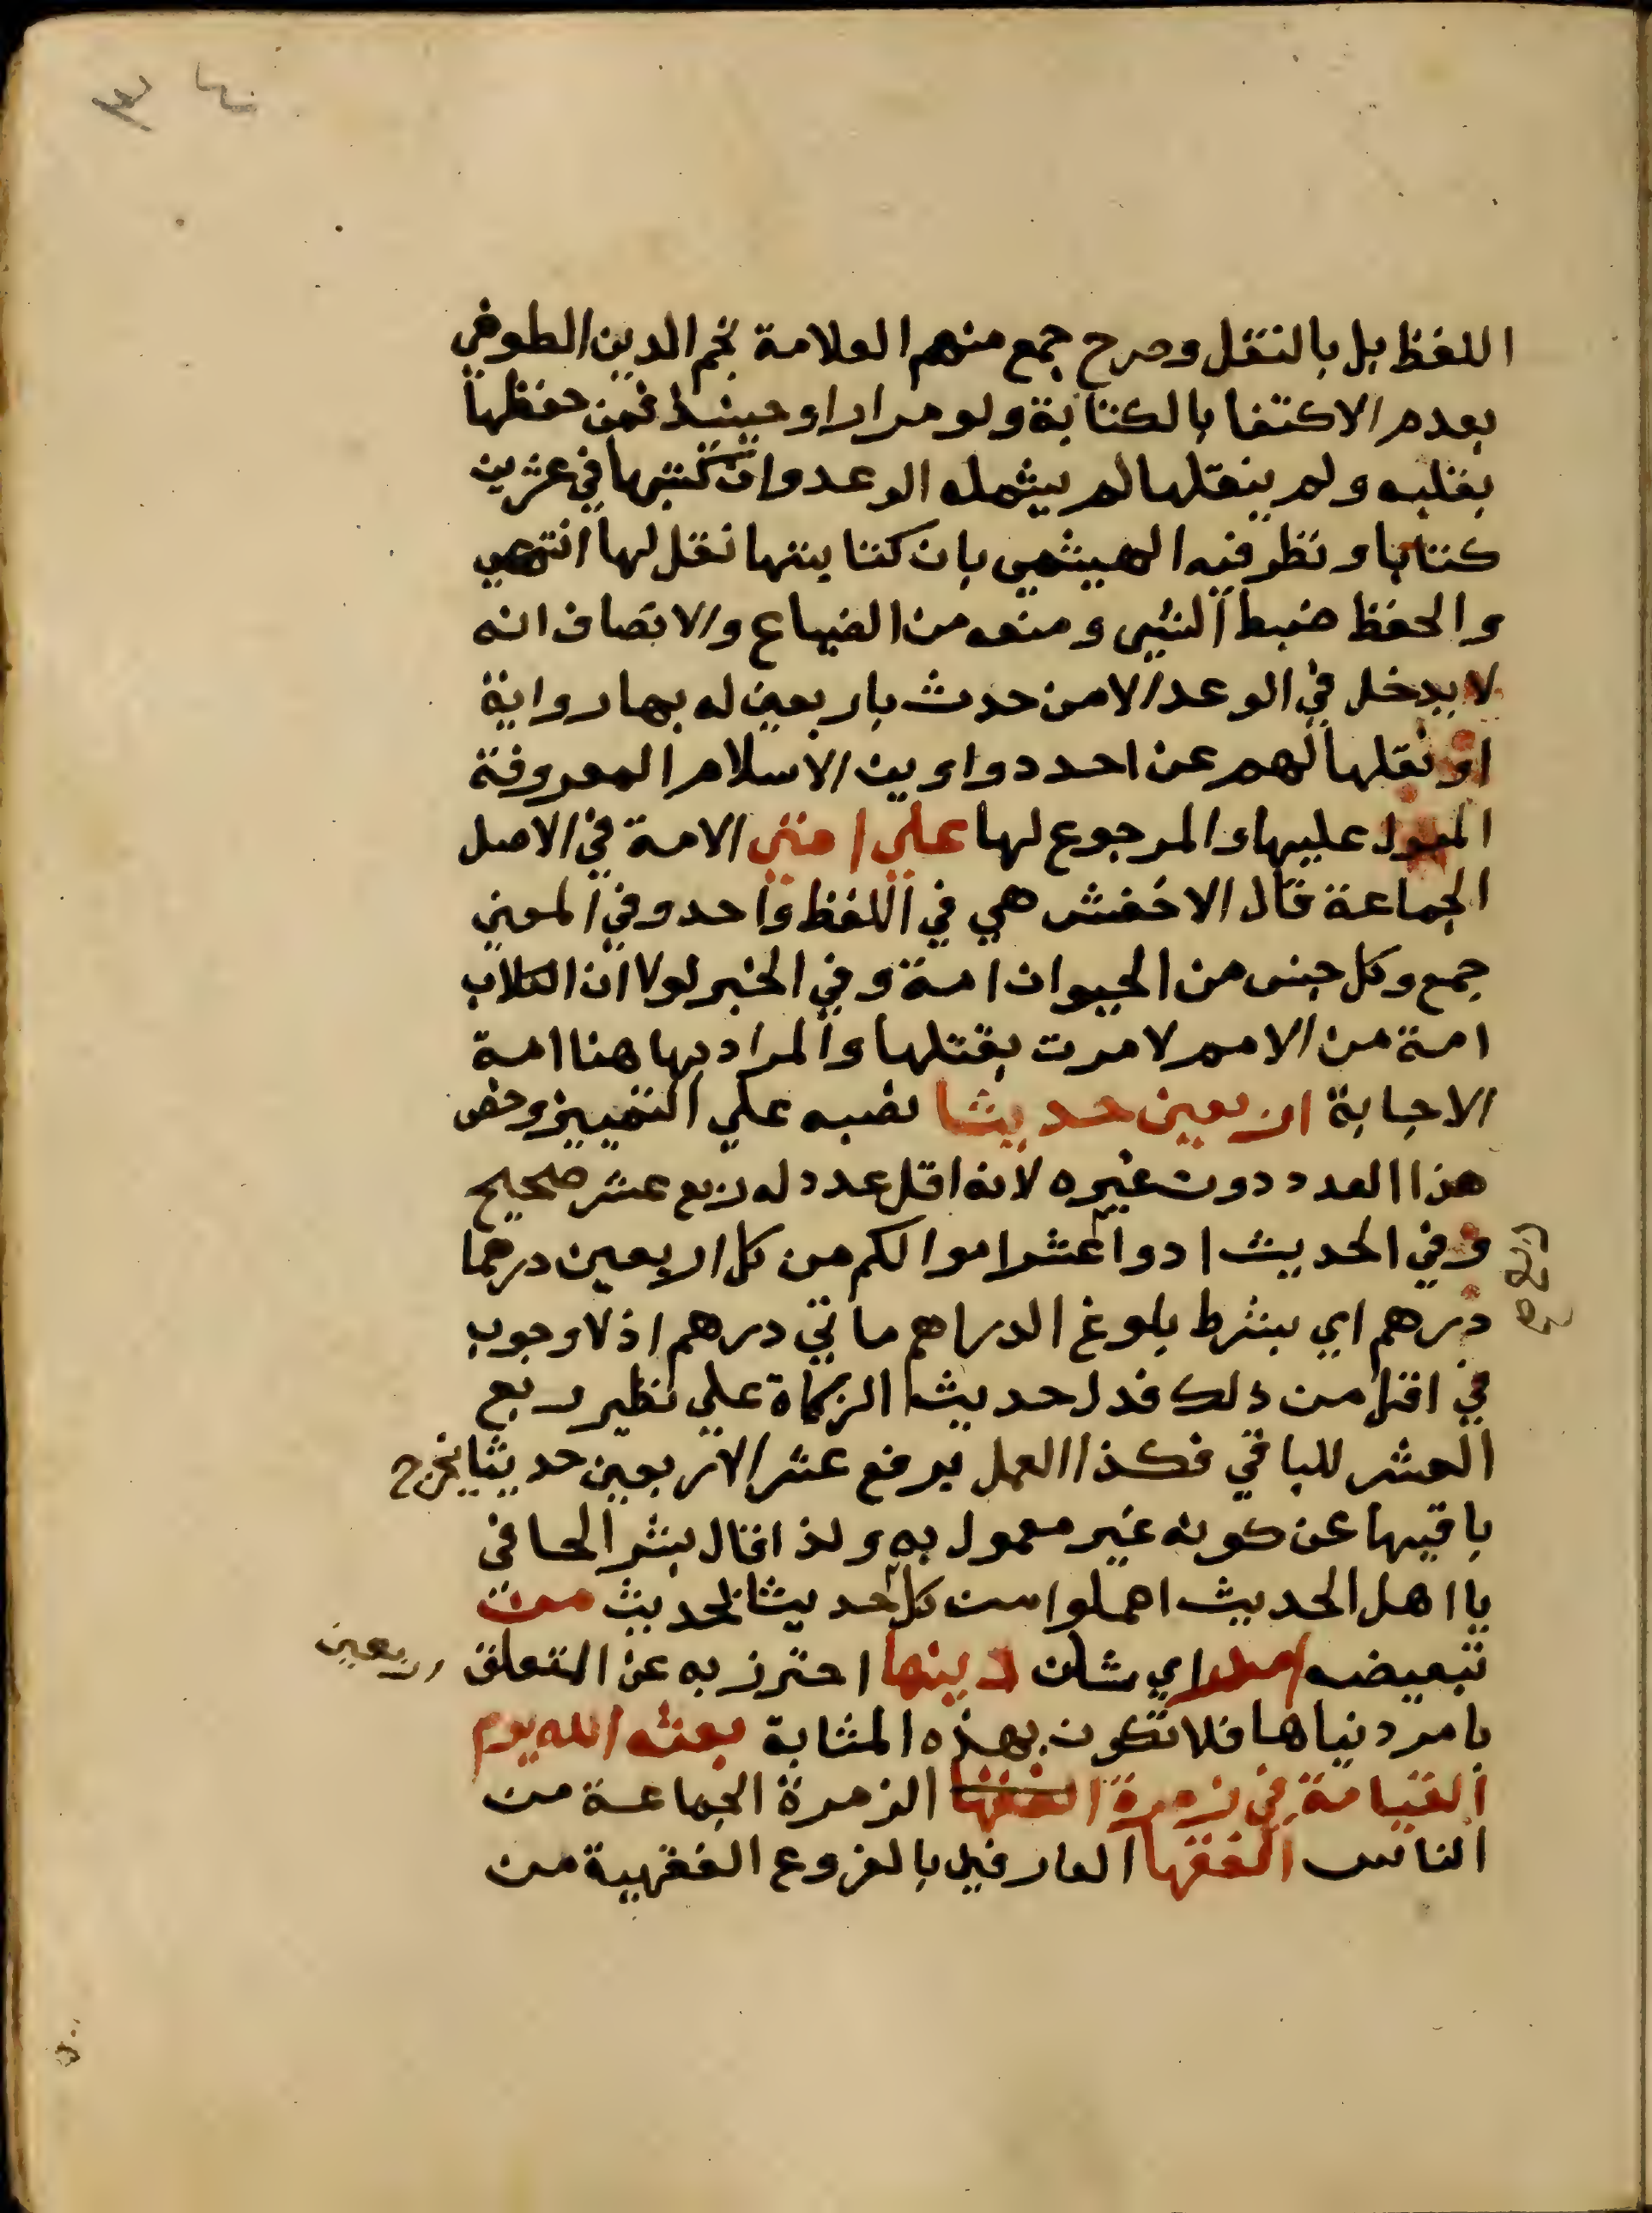 اللفظ بل بالنقل وصرح جمع منهم العلامة نجم الدين الطوفي
بعدم الاكتفا بالكتابة ولو مرارا وحينئذ فمن حفظها
بقلبه ولم ينقلها لم يشمله الوعد وان كتبها في عشرين
كتابا ونظر فيه الهيثمي بان كتابتها نقل لها انتهي
والحفظ ضبط الشي ومنعه من الضياع والانصاف انه
لا يدخل في الوعد الا من حدث باربعين له بها رواية
او نقلها لهم عن احد دواوين الاسلام المعروفة
المعول عليها والمرجوع لها علي امتي الامة في الاصل
الجماعة قال الاخفش هي في اللفظ واحد وفي المعني
جمع وكل جنس من الحيوان امة وفي الخبر لولا ان الكلاب
امة من الامم لامرت بقتلها والمراد بها هنا امة
الاجابة اربعين حديثا نصبه علي التمييز وخص
هذا العدد دون غيره لانه اقل عدد له ربع عشر صحيح
وفي الحديث ادوا عشر اموالكم من كل اربعين درهما
درهم اي بشرط بلوغ الدراهم ماتي درهم اذ لا وجوب
في اقل من ذلك فدل حديث الزكاة علي تطهير ربع
العشر للباقي فكذا العمل بربع عشر الاربعين حديثا يخرج
باقيها عن كونه غير معمول به ولذا قال بشر الحافي
يا اهل الحديث اعملوا من كل حديثا بحديث من
اربعين
تبعيضه امر اي شان دينها احترز به عن المتعلق
بامر دنياها فلا تكون بهذه المثابة بعثه الله يوم
القيامة في زمرة الفقها الزمرة الجماعة من
الناس الفقها العارفين بالفروع الفقهية من